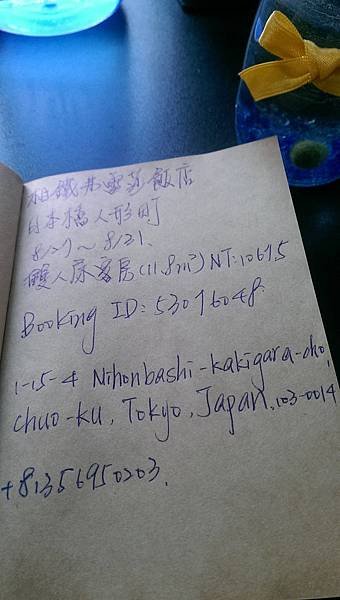 相鐵弗雷薩飯店
日本橋人形町
8/17～8/21.
雙人床客房(11.8m²) NT:10615
Booking ID: 53076048.
1-15-4 Nihonbashi-kakigara-cho,
chuo-ku, Tokyo, Japan, 103-0014
+81356950203.